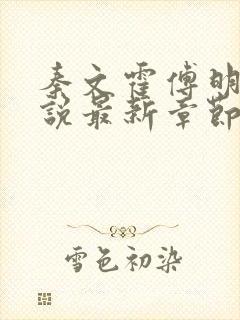 秦文霍傅明
說最新章節
雪色初染